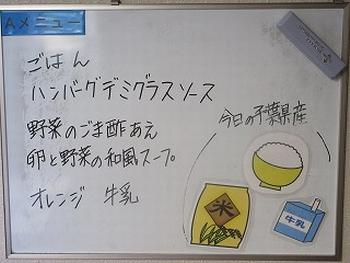 Aメニュー
ごはん
ハンバーグデミグラスソース
野菜のごま酢あえ
卵と野菜の和風スープ
オレンジ 牛乳
今日の千葉県産
米
牛乳